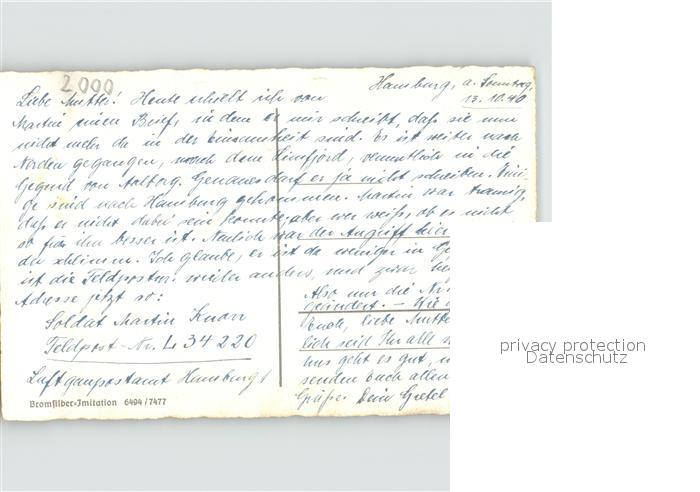 2000
Hamburg, a. Sonntag,
13.10.40
Liebe Mutter! Heute erhielt ich von
Martin einen Brief, in dem er mir schreibt, daß sie nun
nicht mehr da in der Einsamheit sind. Es ist weiter nach
Norden gegangen, nach dem Limfjord, vermutlich in die
Gegend von Aalborg. Genaues darf er ja nicht schreiben. Eini-
ge sind nach Hamburg gekommen. Martin war traurig,
daß er nicht dabei sein konnte; aber wer weiß, ob es nicht
so für ihn besser ist. Neulich war der Angriff hier
der schlimm. Ich glaube, er ist da weniger in
ist die Feldpostnr. wieder anders, und zwar
Adresse jetzt so:
Soldat Martin Knorr
Feldpost-Nr. L 34 220
Luftgaupostamt Hamburg 1
Also nur die
geändert. – Wie
Euch, liebe Mutte
lich seid Ihr alle
uns geht es gut,
senden Euch allen
Grüße. Dein Gretel
Bromsilber-Imitation 6494/7477
privacy protection
Datenschutz